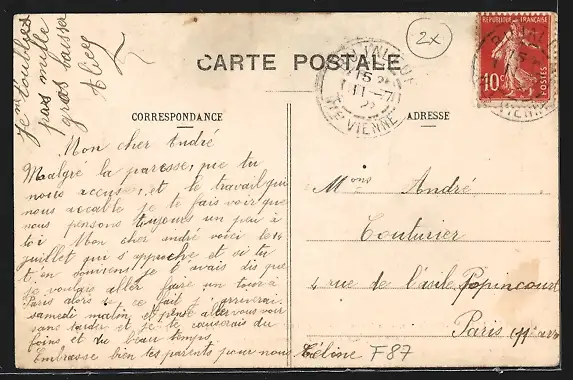 Je n'oublies
pas mille
gros baiser
Alice
CARTE POSTALE
2x
REPUBLIQUE FRANÇAISE
10c
POSTES
15
11-7
22
HTE VIENNE
CORRESPONDANCE
ADRESSE
Mon cher André
Malgré la paresse, que tu
nous accuse, et le travail qui
nous accable je te fais voir que
nous pensons toujours un peu à
toi Mon cher andré voici le 14
juillet qui s'approche et si tu
t'en souviens je t'avais dis que
je voulais aller faire un tour à
Paris alors ce fait j'arriverai
samedi matin, et pense aller vous voir
sans tarder et je te causerais du
foins et du beau temps.
Embrasse bien tes parents pour nous Céline
Mons André
Couturier
4 rue de l'asile Popincourt
Paris 11e arr
F87